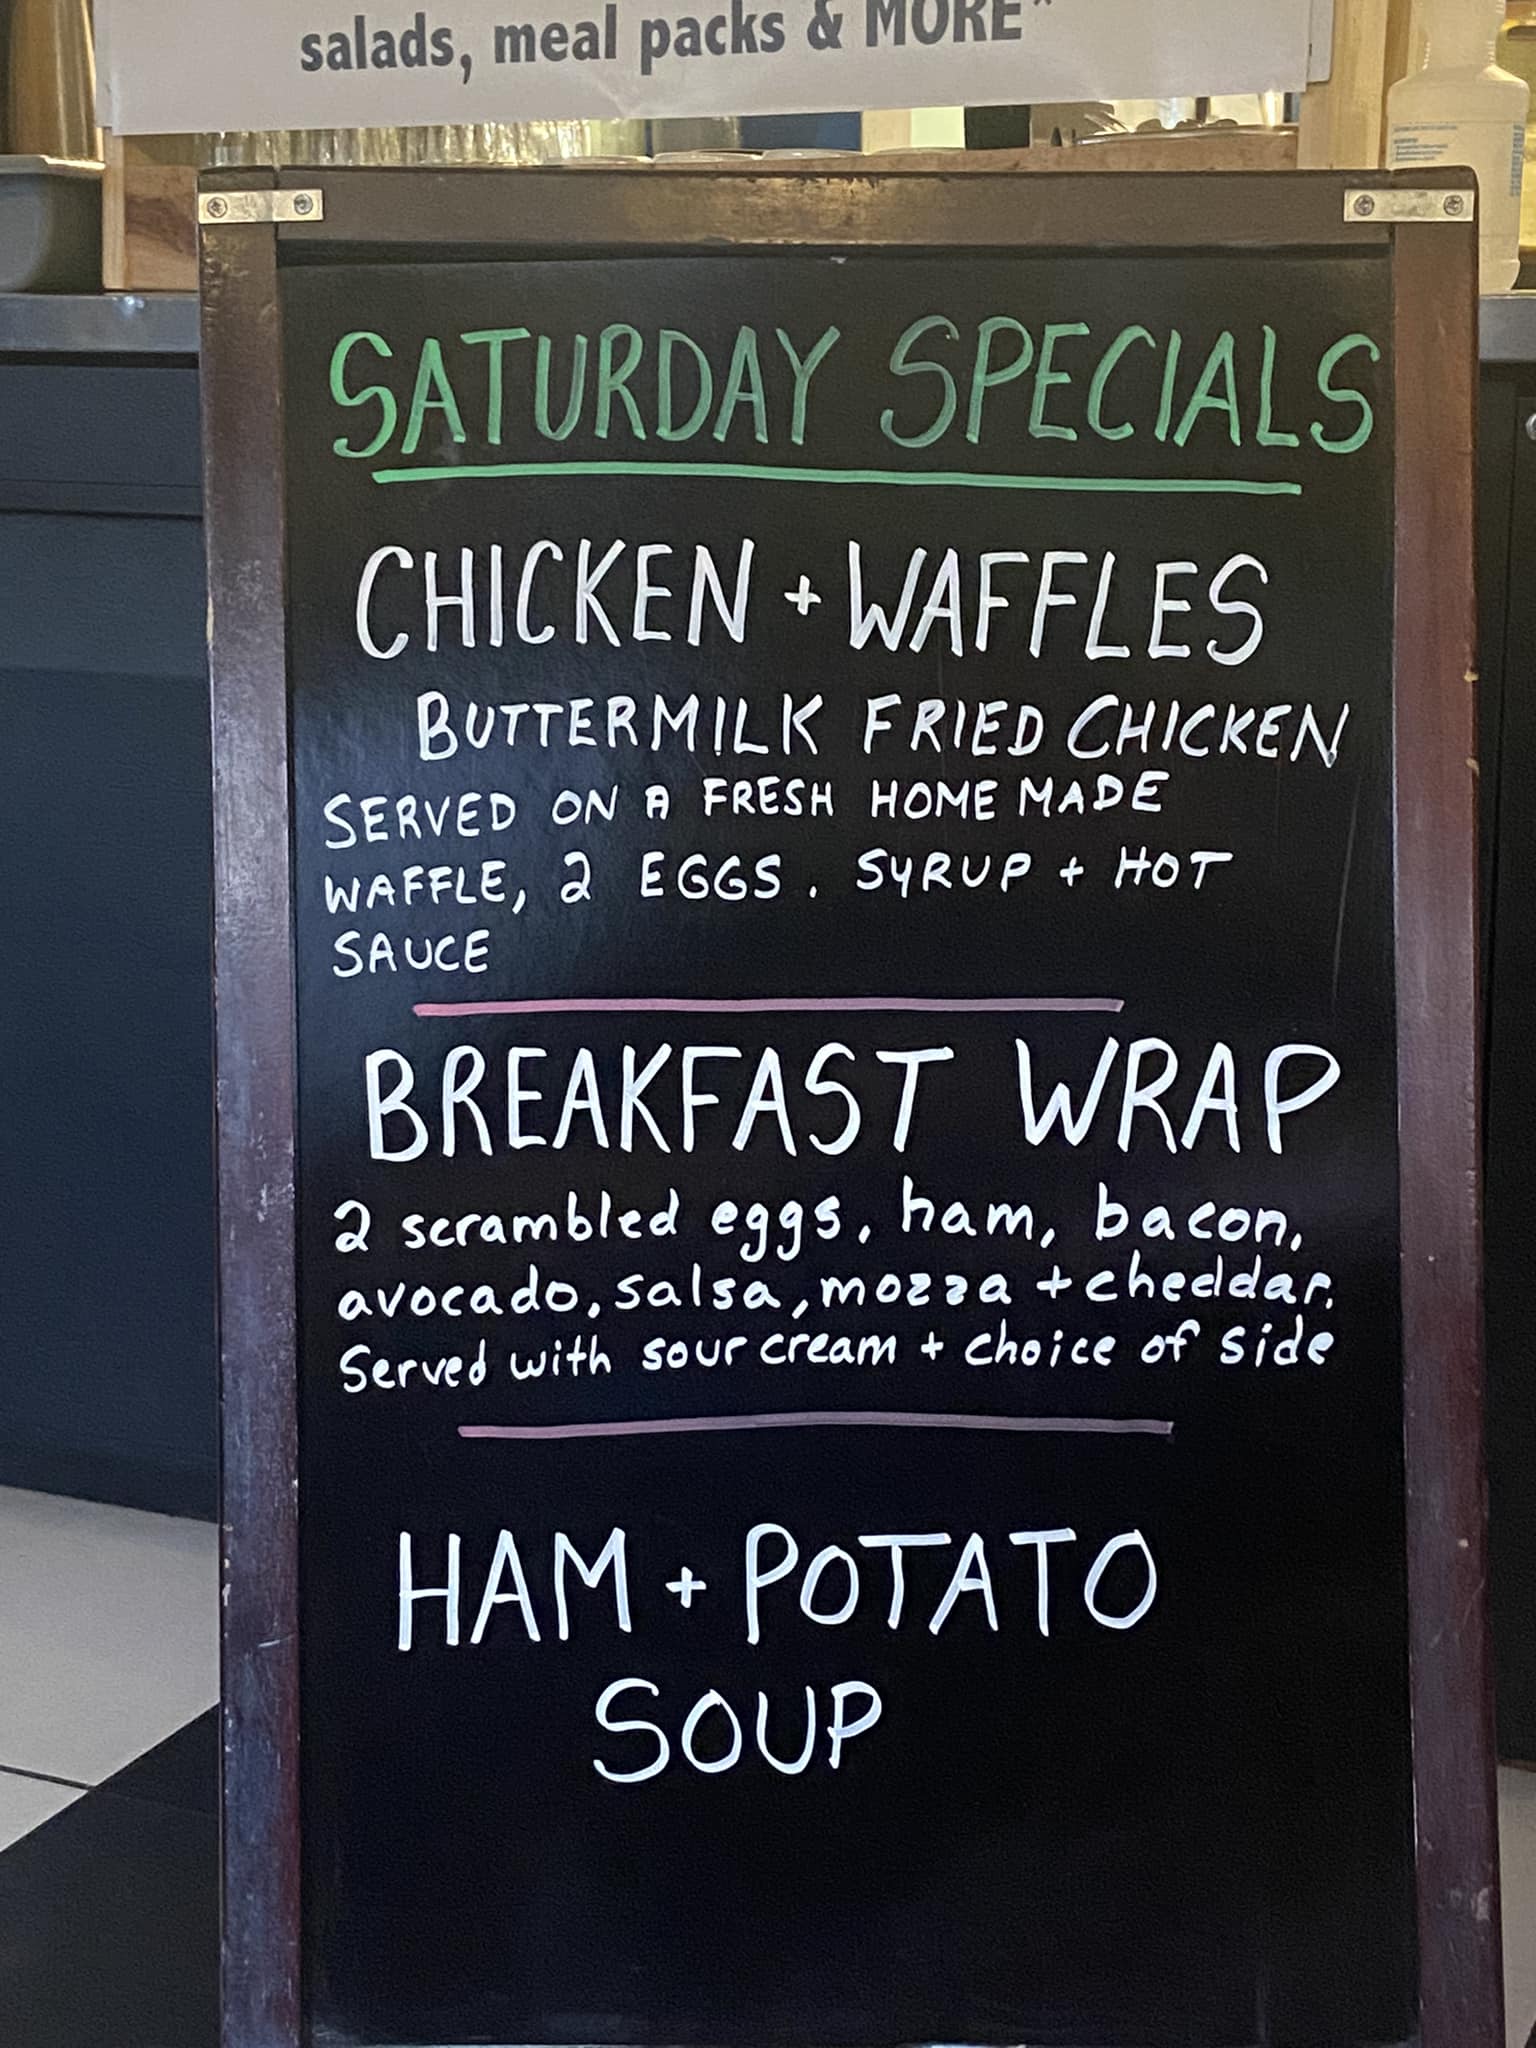 salads, meal packs & MORE*
SATURDAY SPECIALS
CHICKEN + WAFFLES
BUTTERMILK FRIED CHICKEN
SERVED ON A FRESH HOMEMADE
WAFFLE, 2 EGGS. SYRUP + HOT
SAUCE
BREAKFAST WRAP
2 scrambled eggs, ham, bacon,
avocado, salsa, mozza + cheddar.
Served with sour cream + choice of side
HAM + POTATO
SOUP